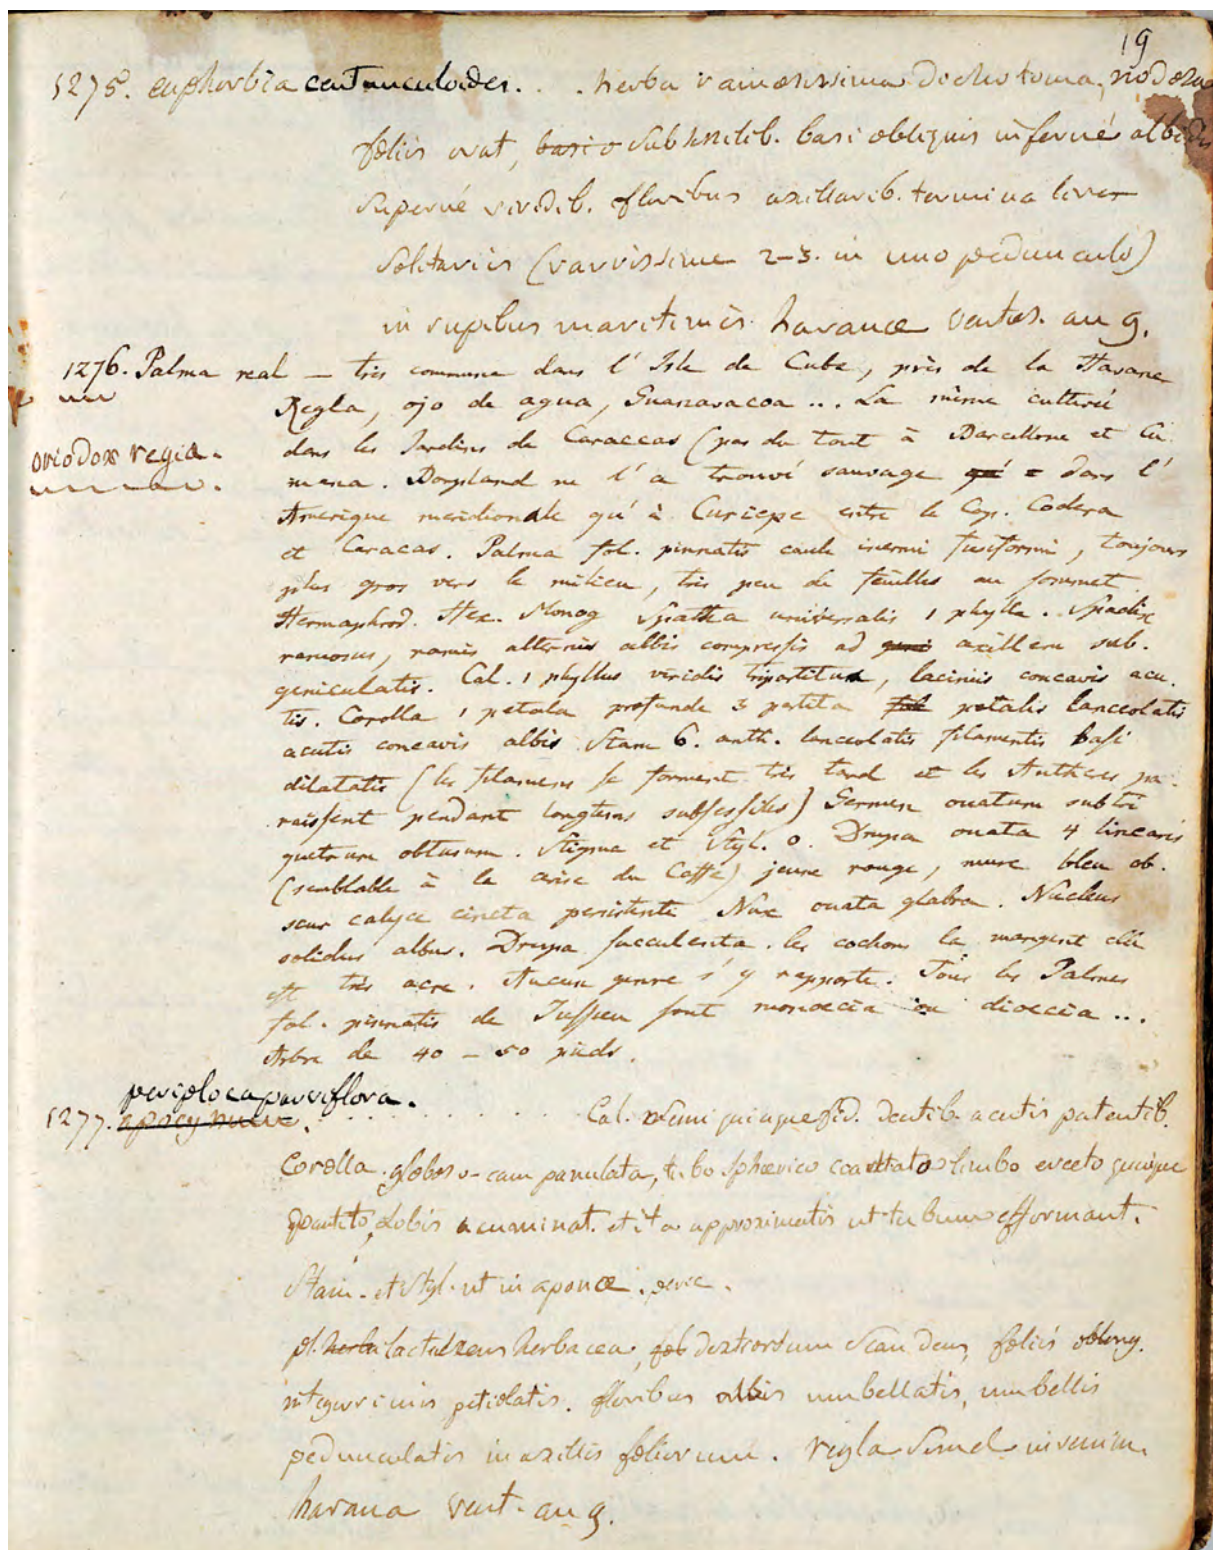 19
1275. euphorbia centunculoides. . . herba ramosissima dichotoma, nodosa
foliis ovat, basi o subsessilib. basi obliquis infernè albidis
supernè viridib. floribus axillarib. terminalive
solitariis (rarissime 2-3. in uno pedunculo)
in rupibus maritimis havanae ventos. aug.
1276. Palma real — très commune dans l' Isle de Cube, près de la Havane
Regla, ojo de agua, Guanavacoa ... La même cultivée
oriodox regia.
dans les Jardins de Caraccas (pas du tout à Barcellone et Cu
mana. Bonpland ne l' a trouvé sauvage qu' = dans l'
Amerique meridionale qu' à Curiepe entre le Cap. Codera
et Caracas. Palma fol. pinnatis caule inermi fusiformi, toujours
plus gros vers le milieu, très peu de feuilles au sommet
Hermaphrod. Hex. Monog Spatha universalis 1 phylla. Spadix
ramosus, ramis alternis albis compressis ad axillem sub.
geniculatis. Cal. 1 phyllus viridis tripartitus, laciniis concavis acu.
tis. Corolla 1 petala profunde 3 partita fol petalis lanceolatis
acutis concavis albis Stam 6. anth. lanceolatis filamentis basi
dilatatis (les filamens se forment très tard et les Antheres pa.
raissent pendant longtems subsessiles) Germen ovatum subtri
quetrum obtusum. Stigma et Styl. 0. Drupa ovata 4 linearis
(semblable à la cerise du Caffe) jaune rouge, mure bleu ob.
scur calyce cincta persistente Nux ovata glabra. Nucleus
solidus albus. Drupa succulenta. les cochons la mangent elle
est très acre. Aucun genre s' y rapporte. Tous les Palmes
fol. pinnatis de Jussieu sont monoecia ou dioecia ...
Arbre de 40 - 50 pieds.
periploca parviflora.
1277. apocynum. . . . . . . . . Cal. semi quinquefid. dentib. acutis patentib.
Corolla globoso-campanulata, tubo sphærico coarctato limbo erecto quinque
partito, Lobis acuminat. et ita approximatis ut tubum efformant.
Stam. et Styl. ut in apocæ.
pl. herba lactescens herbacea, fol dextrorsum scandens, foliis oblong.
integerrimis petiolatis. floribus albis umbellatis, umbellis
pedunculatis in axillis foliorum. regla semel invenim.
havana vent. aug.